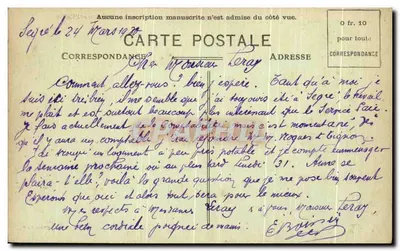 Aucune inscription manuscrite n'est admise du côté vue.
Segré le 24 Mars 1920
CARTE POSTALE
0 fr. 10
pour tout:
CORRESPONDANCE
CORRESPONDANCE
ADRESSE
Cher Monsieur Leray
Comment allez-vous? bien j'espère. Tant qu'à moi je
suis ici très bien. Il me semble que j'ai toujours été à Segré, le travail
me plait et est surtout beaucoup plus intéressant que la
Je fais actuellement mais c'est momentané. Dès
qu'il y aura un comptable
de trouver un logement à peu près potable et je compte emménager
la semaine prochaine ou au plus tard lundi 31. Nous se
plaira-t'elle? voilà la grande question que je me pose bien souvent
Espérons que oui et alors tout sera pour le mieux.
Mes respects à Mesdames Leray & à vous Monsieur Leray,
une bien cordiale poignée de mains.